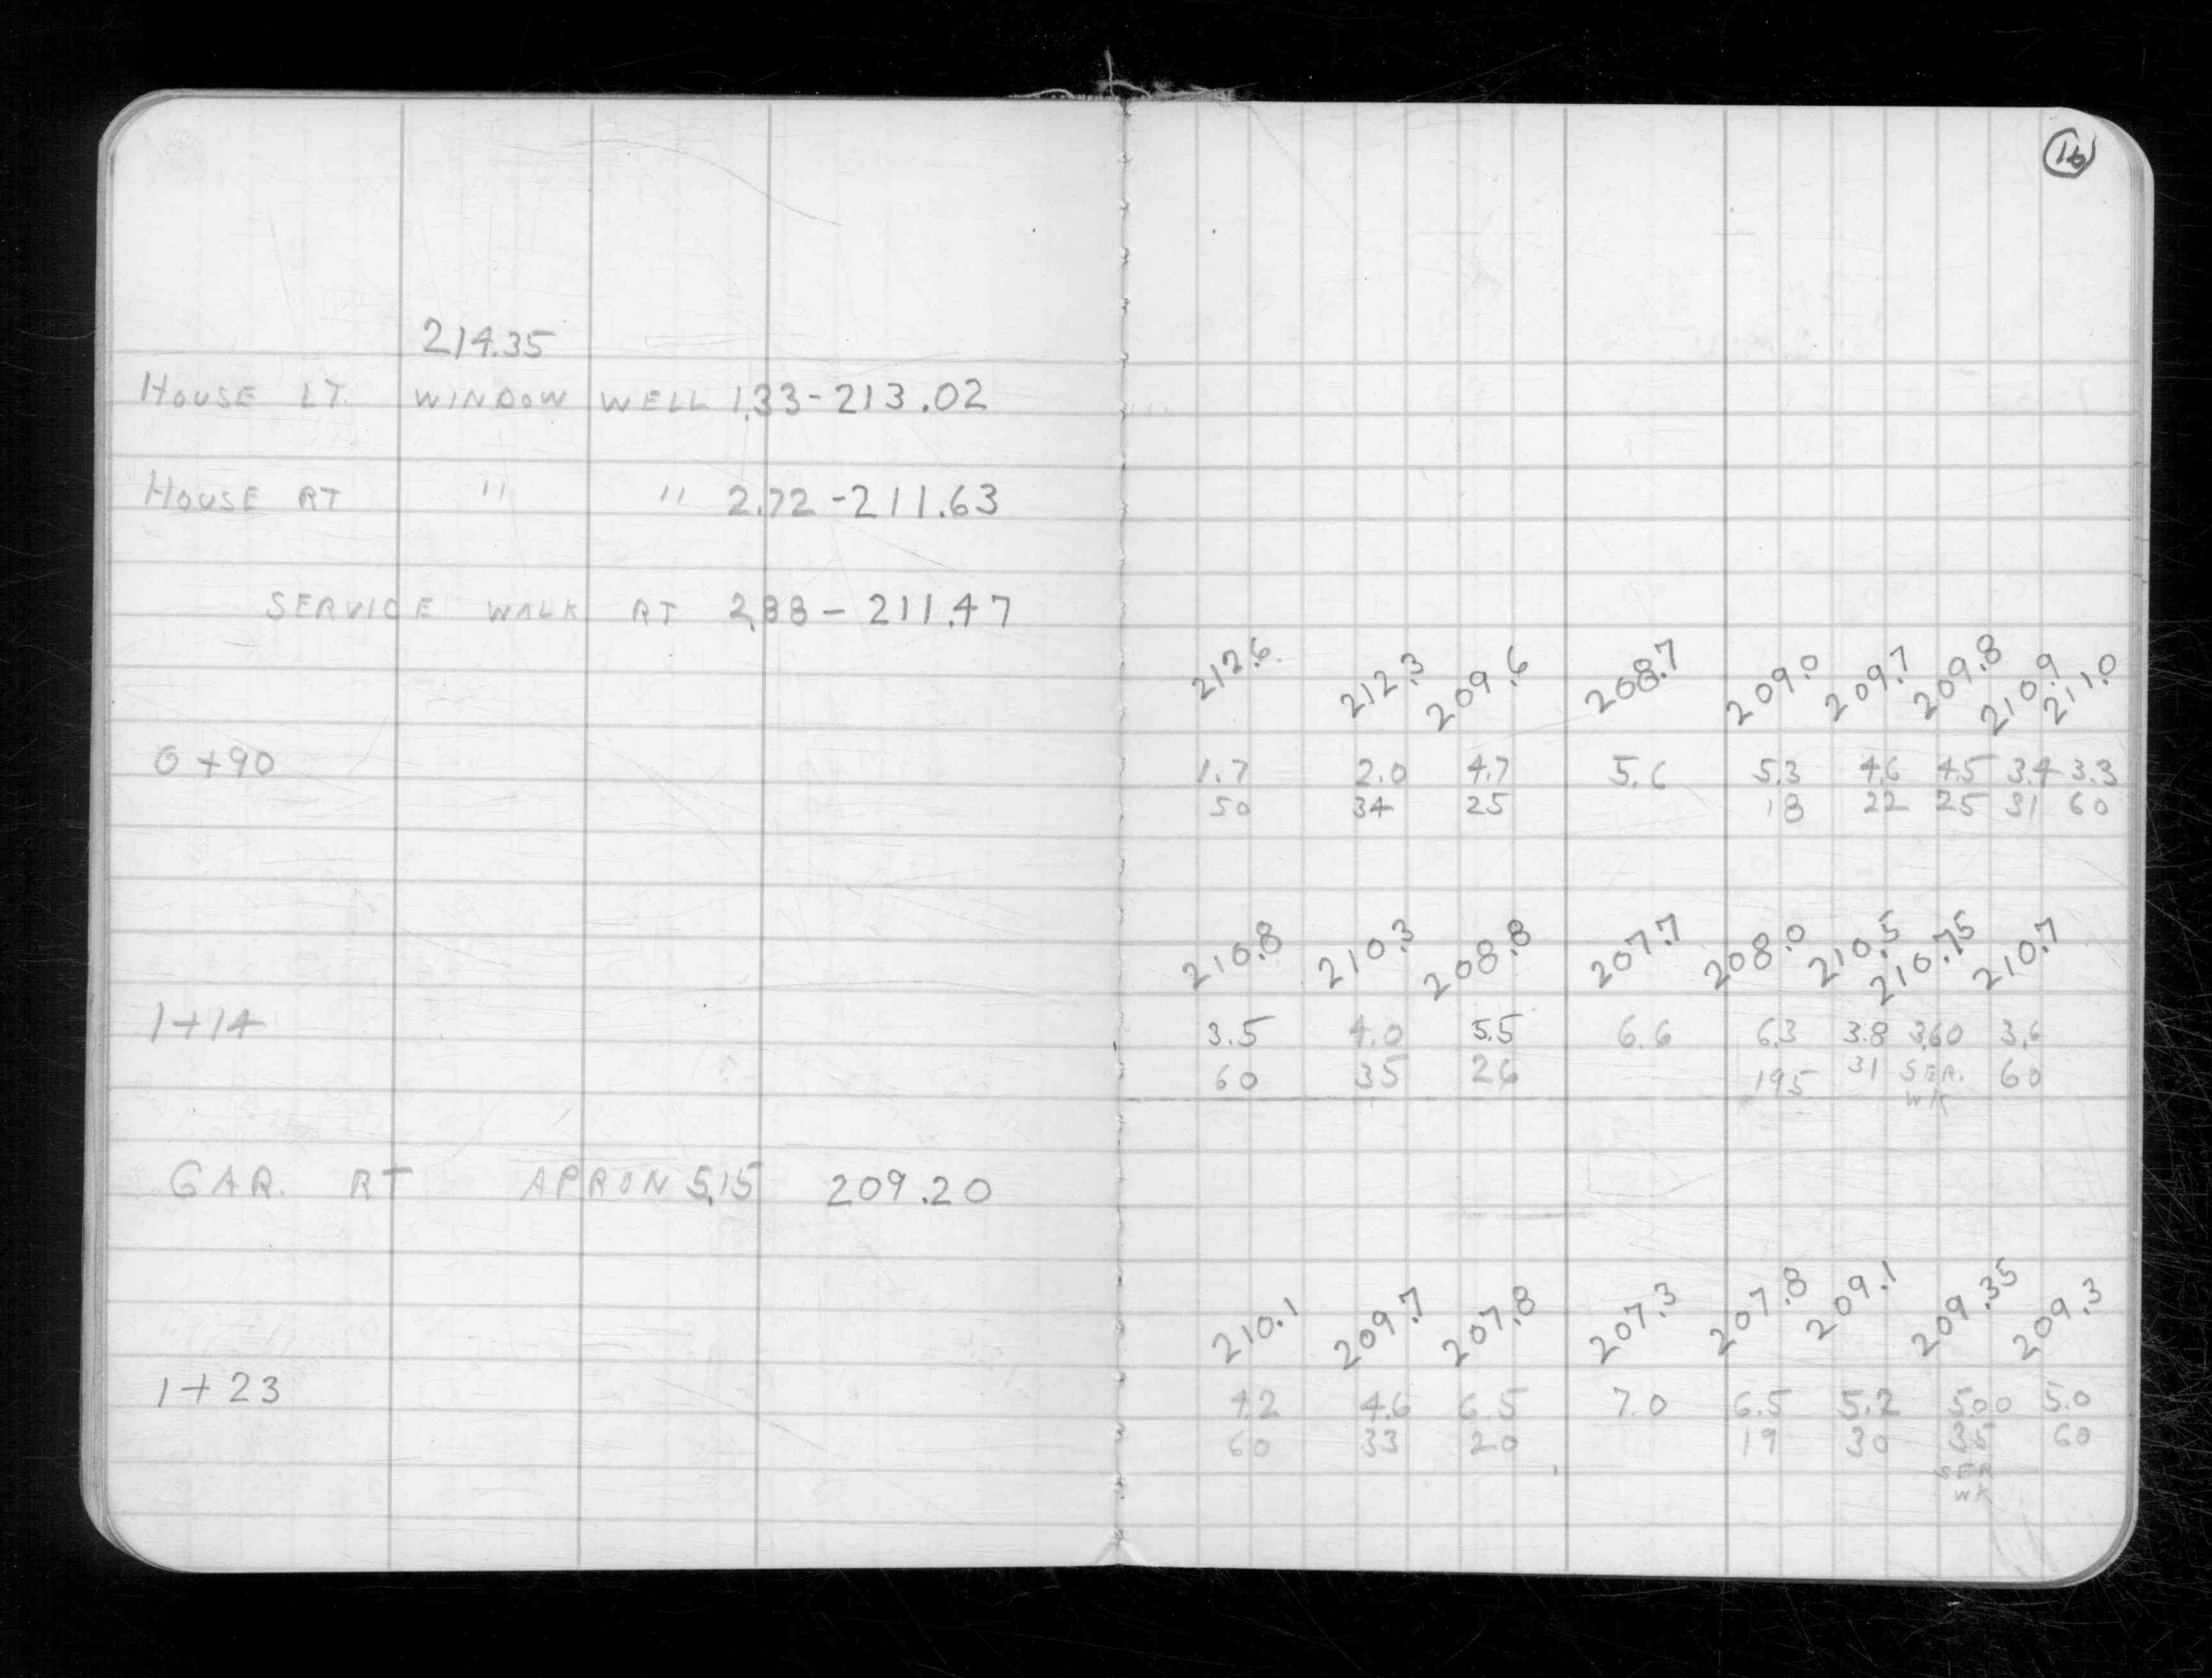 16
214.35
HOUSE LT. WINDOW WELL 1.33-213.02
HOUSE RT " " 2.72-211.63
SERVICE WALK RT 2.88-211.47
212.6 212.3 209.6 208.7 209.0 209.7 209.8 210.9 211.0
0+90 1.7 2.0 4.7 5.6 5.3 4.6 4.5 3.4 3.3
50 34 25 18 22 25 31 60
210.8 210.3 208.8 207.7 208.0 210.5 210.75 210.7
1+14 3.5 4.0 5.5 6.6 6.3 3.8 3.60 3.6
60 35 26 195 31 SER. 60
WK
GAR. RT APRON 5.15 209.20
210.1 209.7 207.8 207.3 207.8 209.1 209.35 209.3
1+23 4.2 4.6 6.5 7.0 6.5 5.2 5.00 5.0
60 33 20 19 30 35 60
SER
WK